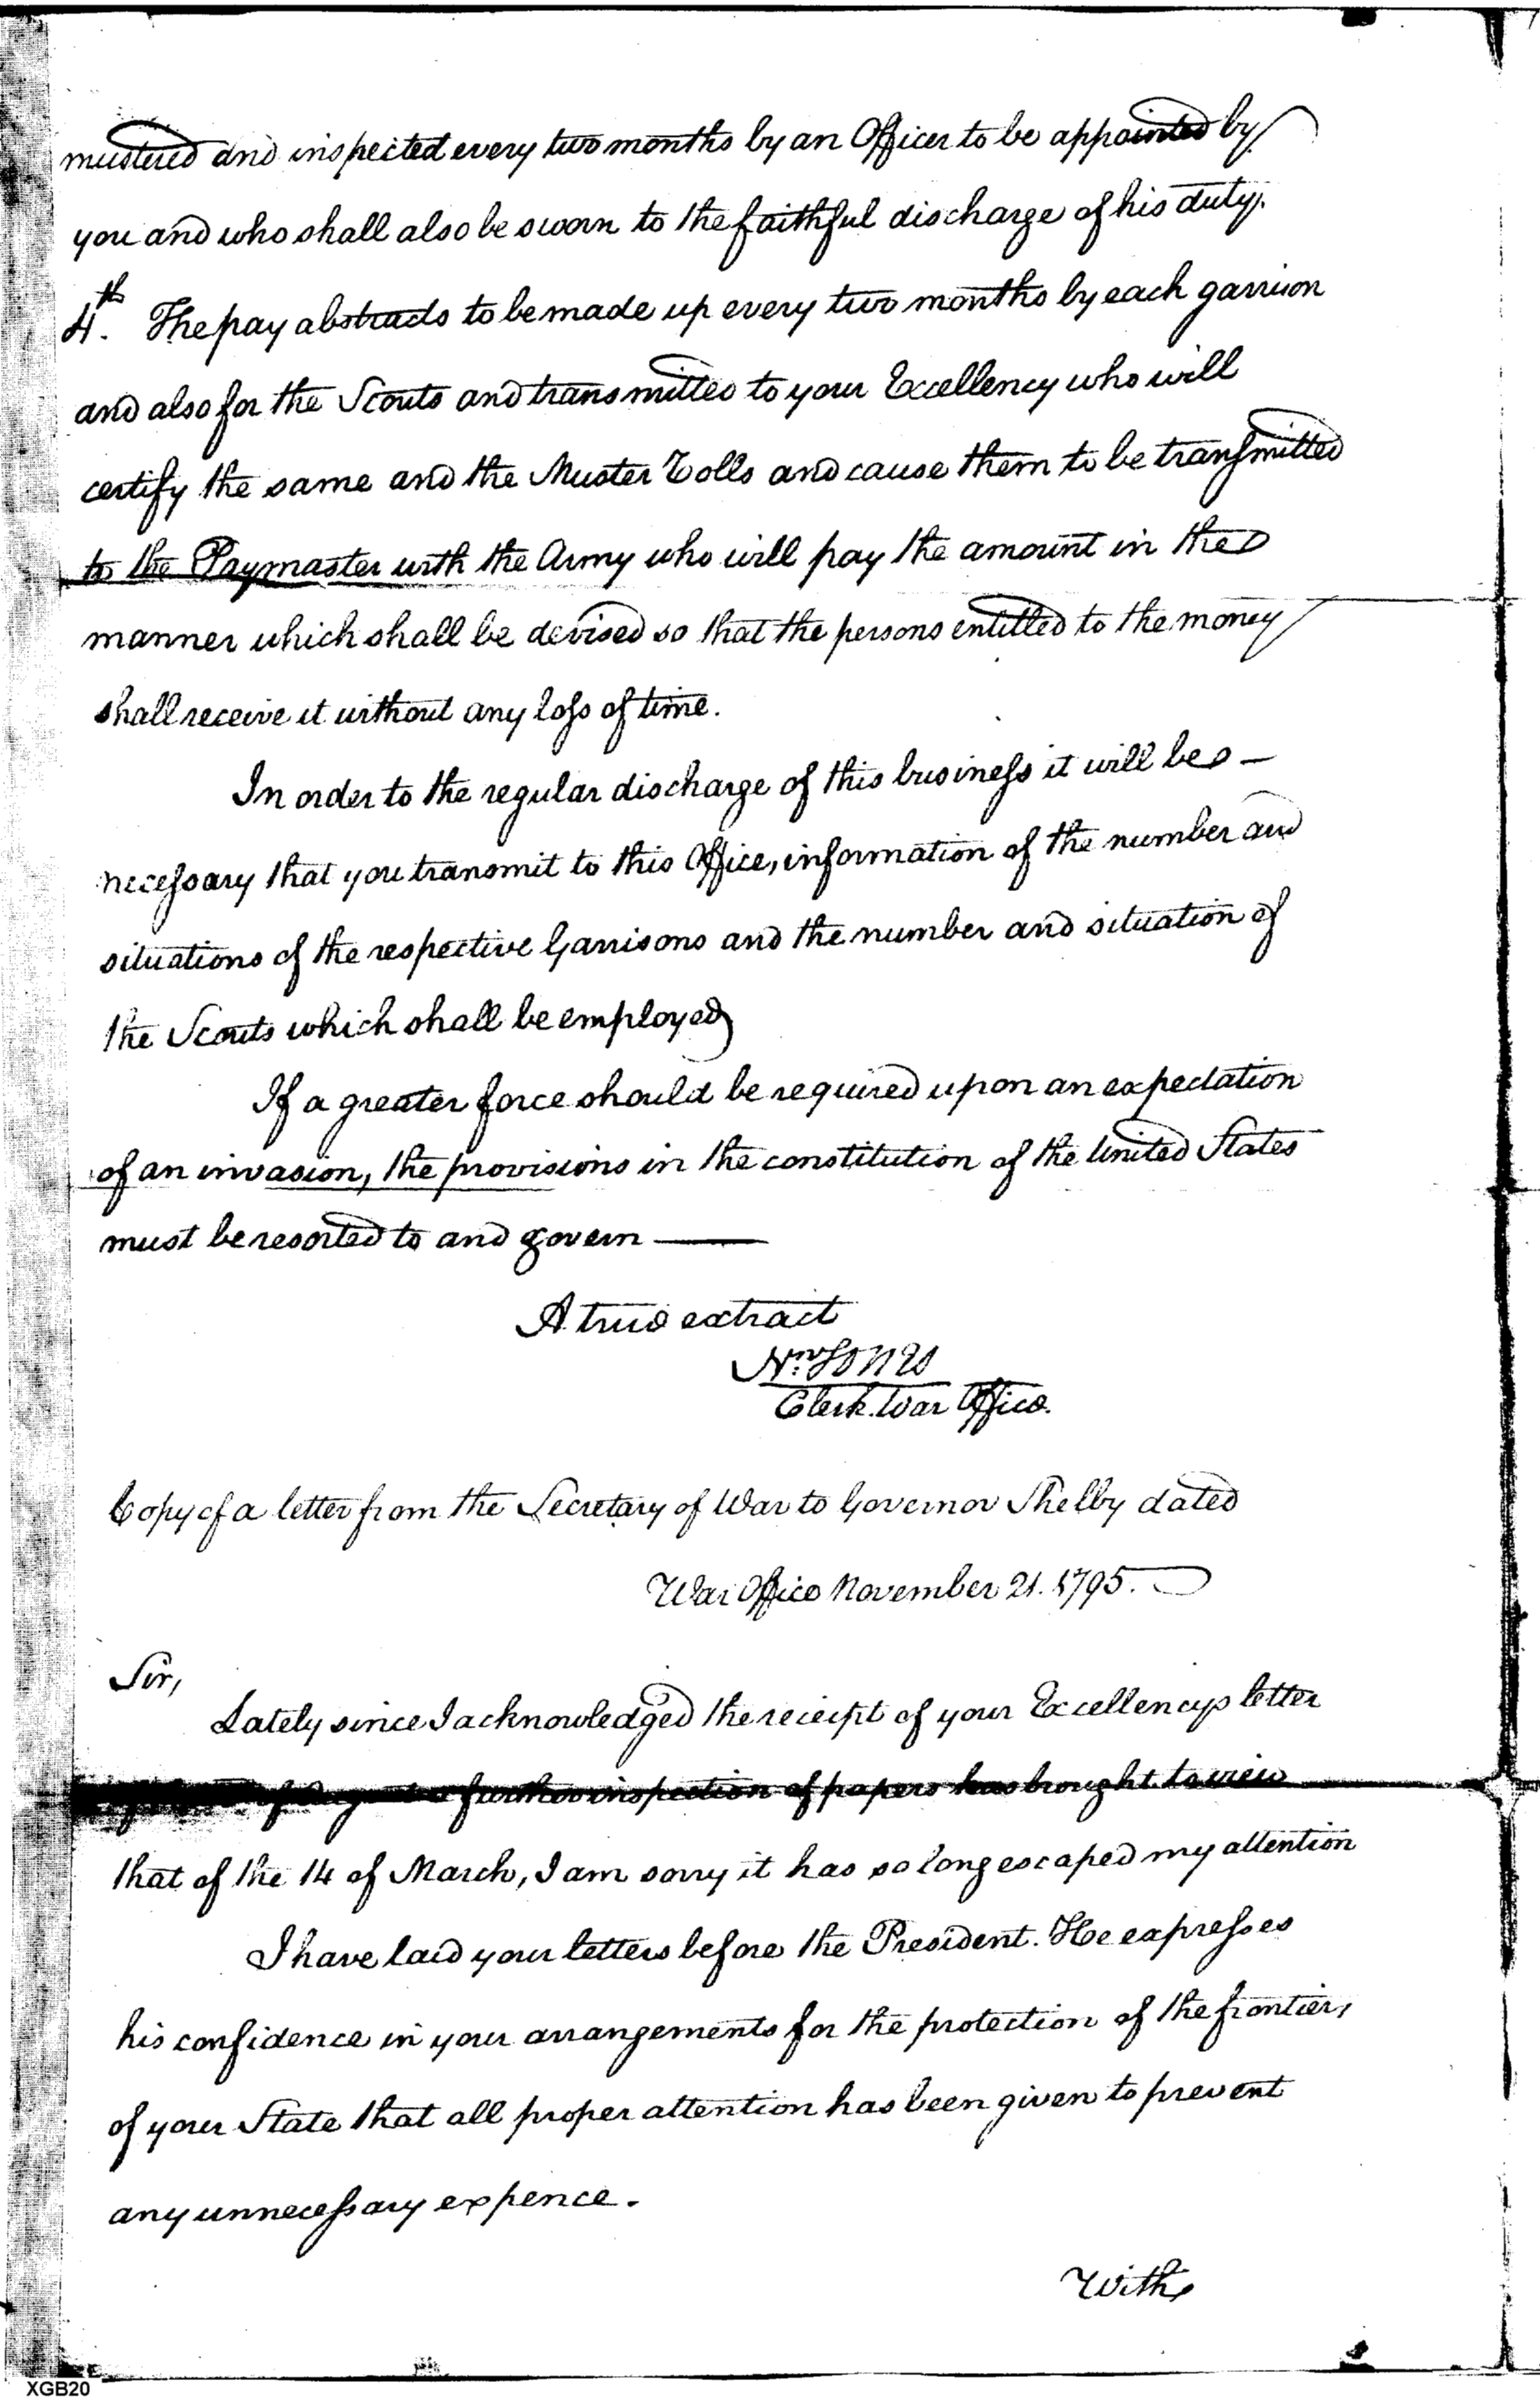 mustered and inspected every two months by an Officer to be appointed by
you and who shall also be sworn to the faithful discharge of his duty.
4th. The pay abstracts to be made up every two months by each garrison
and also for the Scouts and transmitted to your Excellency who will
certify the same and the Muster Rolls and cause them to be transmitted
to the Paymaster with the Army who will pay the amount in the
manner which shall be devised so that the persons entitled to the money
shall receive it without any loss of time.
In order to the regular discharge of this business it will be —
necessary that you transmit to this Office, information of the number and
situations of the respective Garrisons and the number and situation of
the Scouts which shall be employed
If a greater force should be required upon an expectation
of an invasion, the provisions in the constitution of the United States
must be resorted to and govern —
A true extract
Jones
Clerk War Office.
Copy of a letter from the Secretary of War to Governor Shelby dated
War Office November 21. 1795.
Sir,
Lately since I acknowledged the receipt of your Excellencys letter
of further inspection of papers has brought to view
that of the 14 of March, I am sorry it has so long escaped my attention
I have laid your letters before the President. He expresses
his confidence in your arrangements for the protection of the frontier,
of your State that all proper attention has been given to prevent
any unnecessary expence.
With
XGB20